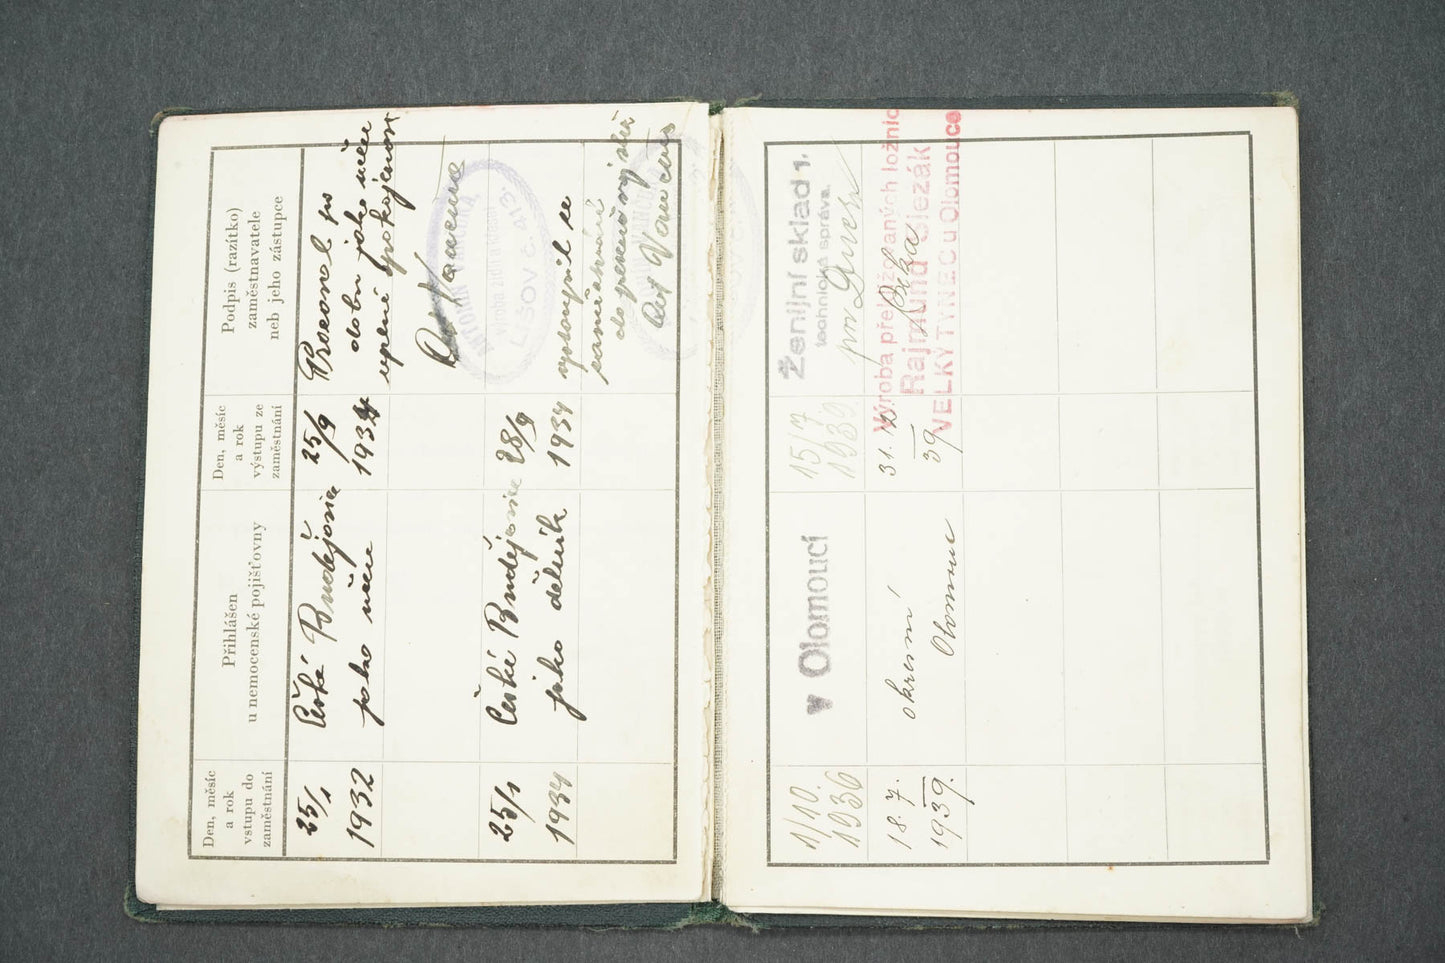 Den, měsíc
a rok
vstupu do
zaměstnání
Přihlášen
u nemocenské pojišťovny
Den, měsíc
a rok
výstupu ze
zaměstnání
Podpis (razítko)
zaměstnavatele
neb jeho zástupce
25/1
1932
České Budějovice
jako učeň
25/9
1934
Pracoval po
dobu jako učeň
úplné spokojenosti
VÝROBA židlí a křesel
LIŠOV č. 413.
25/1
1934
České Budějovice
jako dělník
28/9
1934
1/10.
1936
v Olomoucí
15/7
1939
Ženijní sklad 1.
technická správa.
18. 7.
1939.
okresní
Olomouc
31.
39.
Výroba přeležovaných ložnic
Rajmund Slezák
VELKÝ TÝNEC u Olomouce